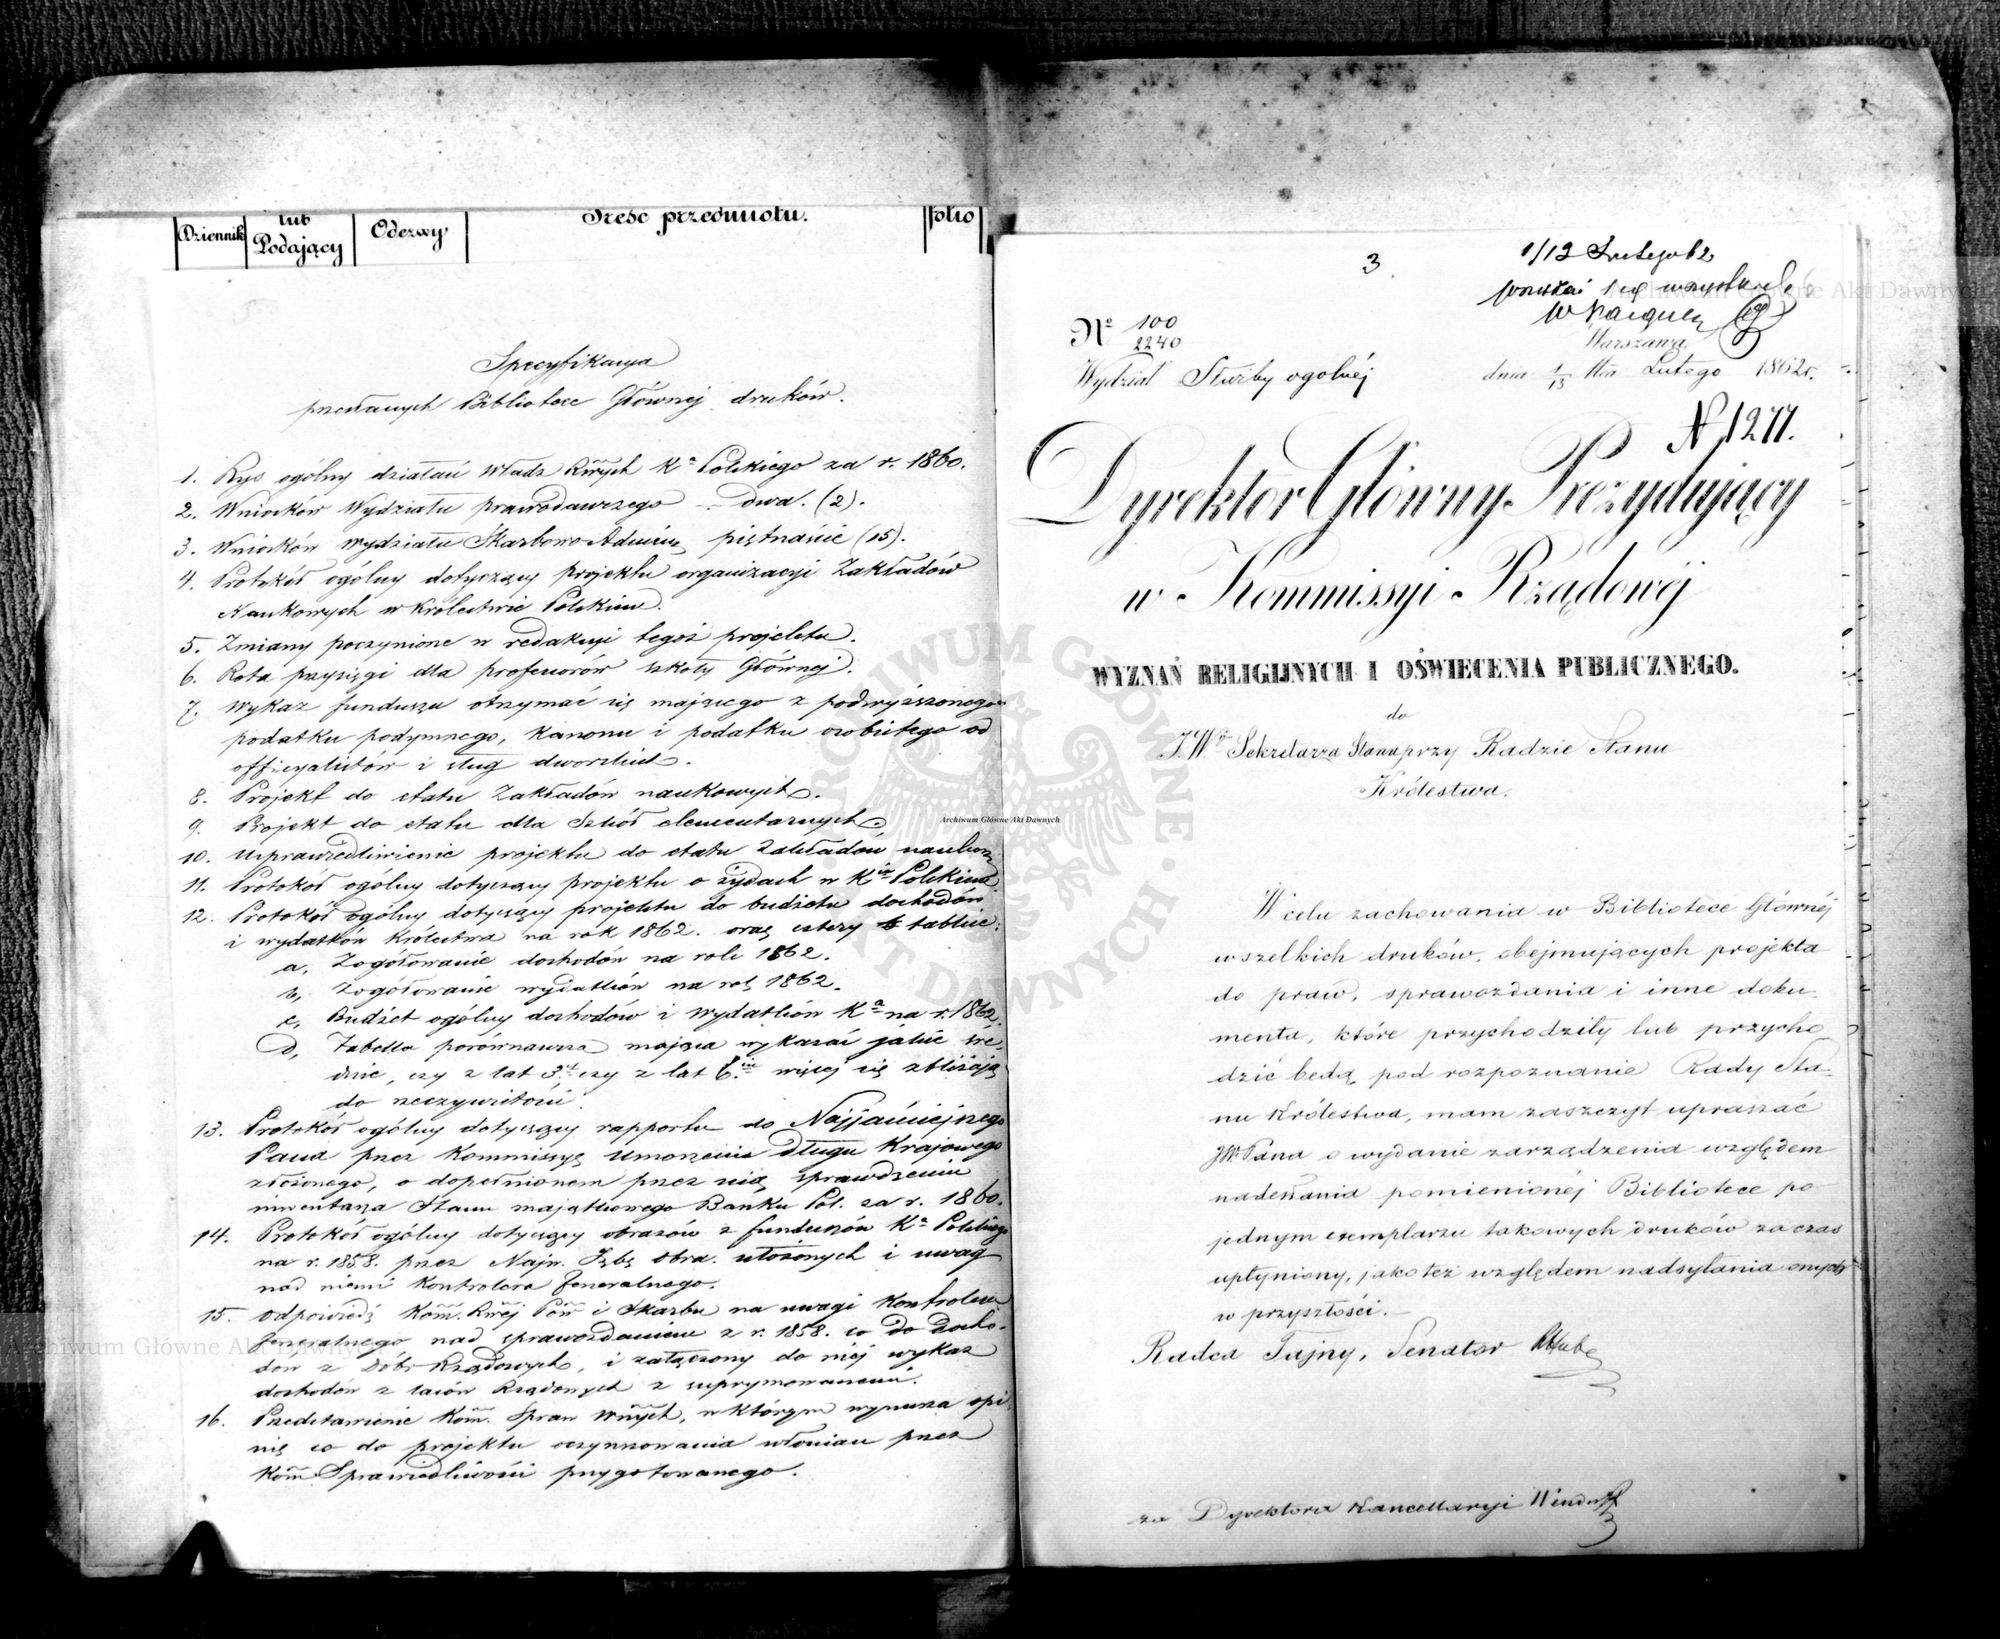 Dziennik
lub
Podający
Odezwy
Treść przedmiotu.
folio
Specyfikacya
przesłanych Bibliotece Głównej druków.
1. Rys ogólny działań Władz Rz̃wych K.ª Polskiego za r. 1860.
2. Wniosków Wydziału prawodawczego — dwa. (2).
3. Wniosków Wydziału Skarbowo-Admin. piętnaście (15).
4. Protokół ogólny dotyczący projektu organizacyi Zakładów
Naukowych w Królestwie Polskiem.
5. Zmiany poczynione w redakcyi tegoż projektu.
6. Rota przysięgi dla profesorów szkoły Głównej.
7. Wykaz funduszu otrzymać się mającego z podwyższonego
podatku podymnego, kanonu i podatku osobistego od
officyalistów i sług dworskich.
8. Projekt do etatu Zakładów naukowych.
9. Projekt do etatu dla Szkół elementarnych.
10. Usprawiedliwienie projektu do etatu Zakładów nauko.
11. Protokół ogólny dotyczący projektu o żydach w K.ie Polskiem
12. Protokół ogólny dotyczący projektu do budżetu dochodów
i wydatków Królestwa na rok 1862. oraz cztery tablice:
a, Zogólowanie dochodów na rok 1862.
b, Zogólowanie wydatków na rok 1862.
c, Budżet ogólny dochodów i wydatków K.ª na r. 1862.
d, Tabella porównawcza mająca wykazać jakie śre-
dnie, czy z lat 3.ch czy z lat 6.iu więcej się zbliżają
do rzeczywistości.
13. Protokół ogólny dotyczący rapportu do Najjaśniejszego
Pana przez Kommissyę Umorzenia Długu Krajowego
złożonego, o dopełnionem przez nią sprawdzeniu
inwentarza Stanu majątkowego Banku Pol. za r. 1860.
14. Protokół ogólny dotyczący obrazów z funduszów K.ª Polskiego
na r. 1858. przez Najw. Izbę Obra. ułożonych i uwag
nad niemi Kontrolera Generalnego.
15. Odpowiedź Kom̃. Rz̃wej Prz̃. i Skarbu na uwagi Kontrolera
Generalnego nad sprawozdaniem z r. 1858. co do docho-
dów z Dóbr Rządowych, i załączony do niej wykaz
dochodów z lasów Rządowych z suprymowanemi.
16. Przedstawienie Kom̃. Spraw Wewñych, w którym wynurza opi-
nię co do projektu oczynszowania włościan przez
Kom̃. Sprawiedliwości przygotowanego.
3.
1/13 Lutego 62
wszystk
Nº 100
2240
Warszawa
Wydział Służby ogólnéj
dnia 1/13 Mca Lutego 1862 r.
N 1277.
Dyrektor Główny Prezydujący
w Kommissyi Rządowéj
WYZNAŃ RELIGIJNYCH I OŚWIECENIA PUBLICZNEGO.
do
J.W.go Sekretarza Stanu przy Radzie Stanu
Królestwa.
W celu zachowania w Bibliotece Głównéj
wszelkich druków, obejmujących projekta
do praw, sprawozdania i inne doku-
menta, które przychodziły lub przycho-
dzić będą pod rozpoznanie Rady Sta-
nu Królestwa, mam zaszczyt upraszać
JW Pana o wydanie zarządzenia względem
nadesłania pomienionéj Bibliotece po
jednym exemplarzu takowych druków za czas
upłyniony, jako też względem nadsyłania onych
w przyszłości.—
Radca Tajny, Senator Hube
za Dyrektora Kancellaryi
ARCHIWUM GŁÓWNE AKT DAWNYCH
Archiwum Główne Akt Dawnych
Archiwum Główne Akt Dawnych
Archiwum Główne Akt Dawnych